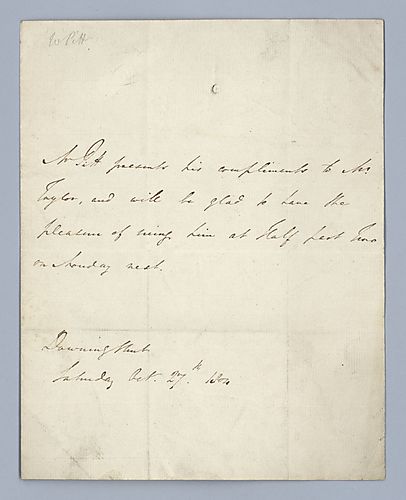 W Pitt.
Mr Pitt presents his compliments to Mr
Taylor, and will be glad to have the
pleasure of seeing him at Half past Two
on Monday next.
Downing Street
Saturday Oct. 27.th 1804